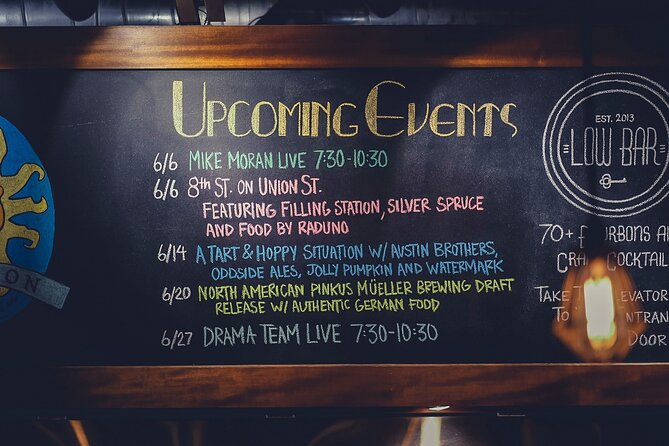 UPCOMING EVENTS
6/6 MIKE MORAN LIVE 7:30-10:30
6/6 8th ST. ON UNION ST.
FEATURING FILLING STATION, SILVER SPRUCE
AND FOOD BY RADUNO
6/14 A TART & HOPPY SITUATION W/ AUSTIN BROTHERS,
ODDSIDE ALES, JOLLY PUMPKIN AND WATERMARK
6/20 NORTH AMERICAN PINKUS MÜELLER BREWING DRAFT
RELEASE W/ AUTHENTIC GERMAN FOOD
6/27 DRAMA TEAM LIVE 7:30-10:30
EST. 2013
LOW BAR
70+
TAKE
TO
DOOR
ON